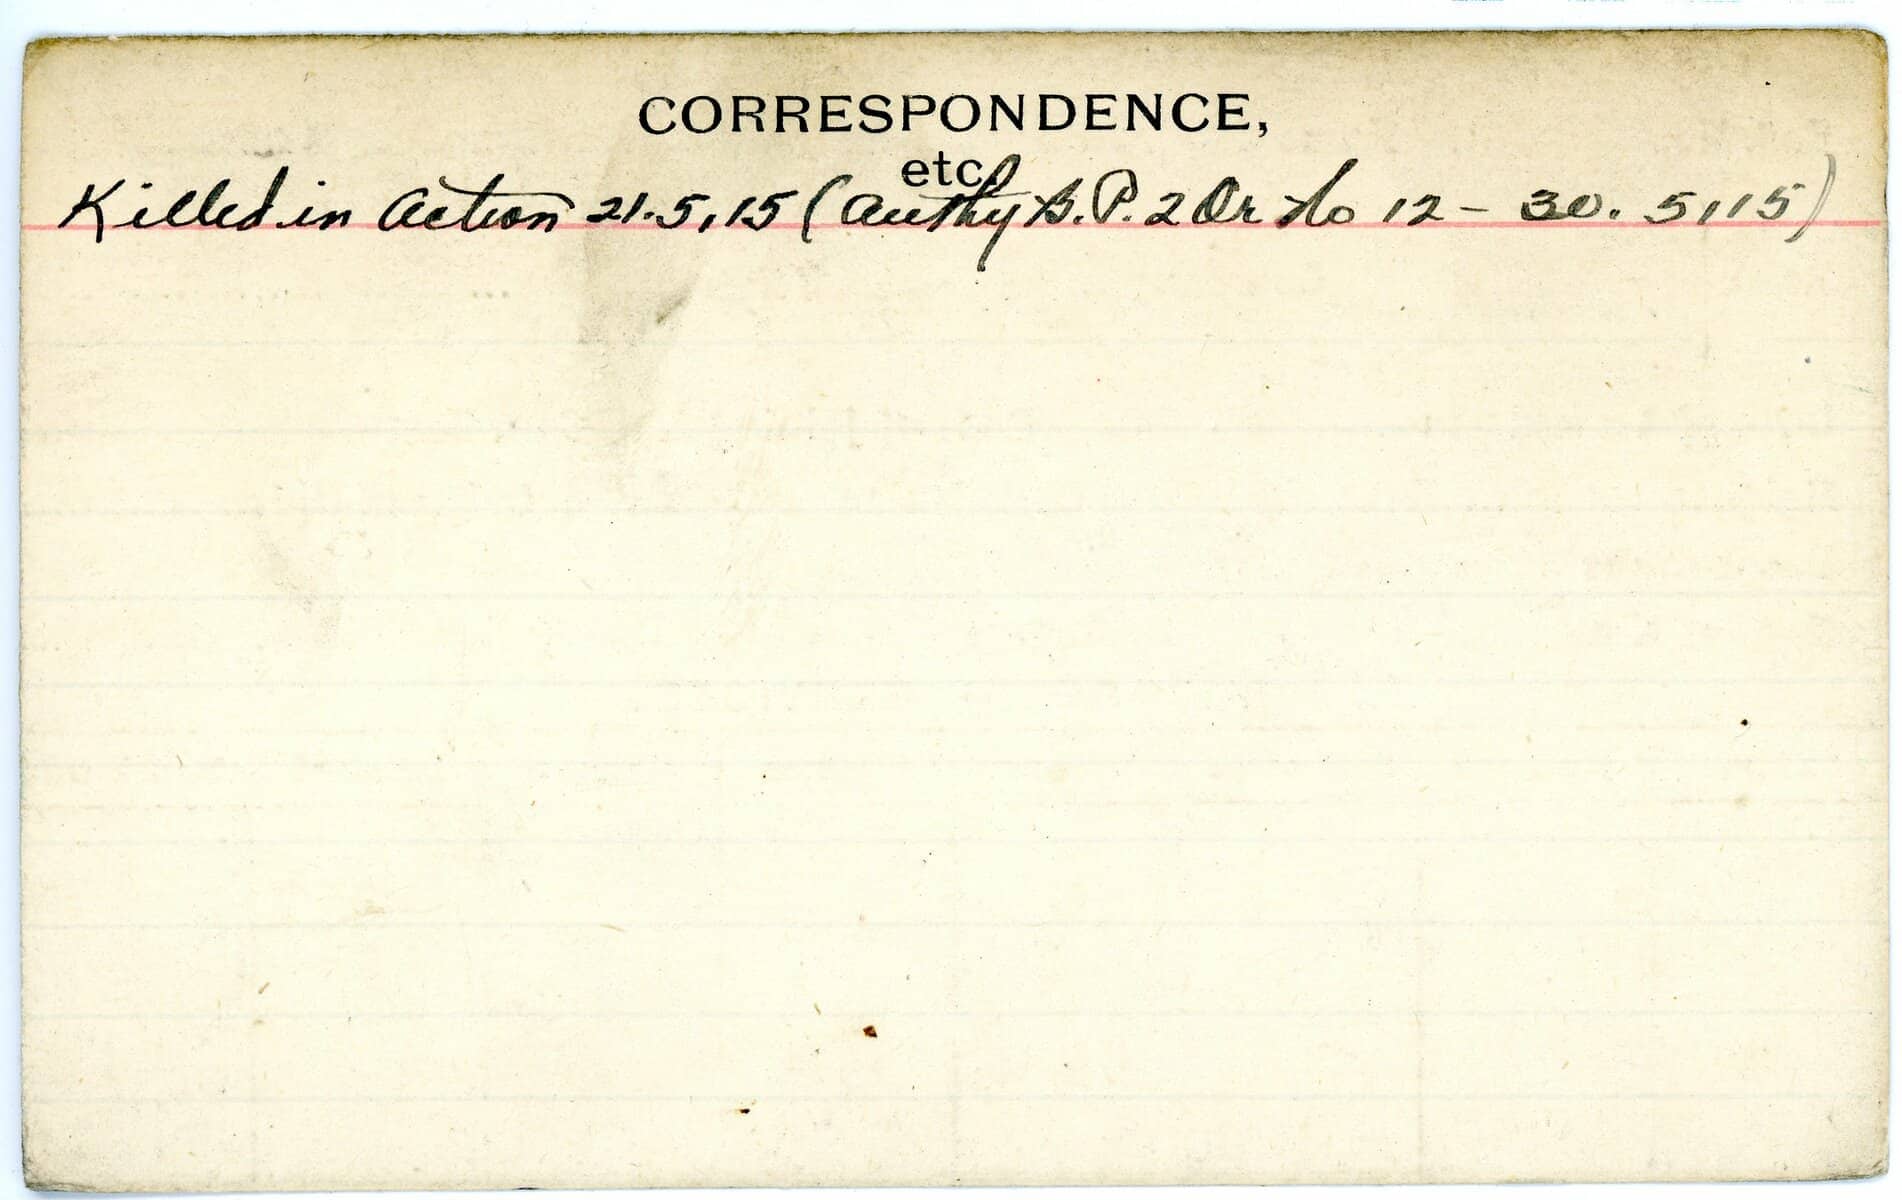 CORRESPONDENCE,
etc.
Killed in Action 21.5.15 (Authy B.P. 2 Or No 12 - 30.5.15)